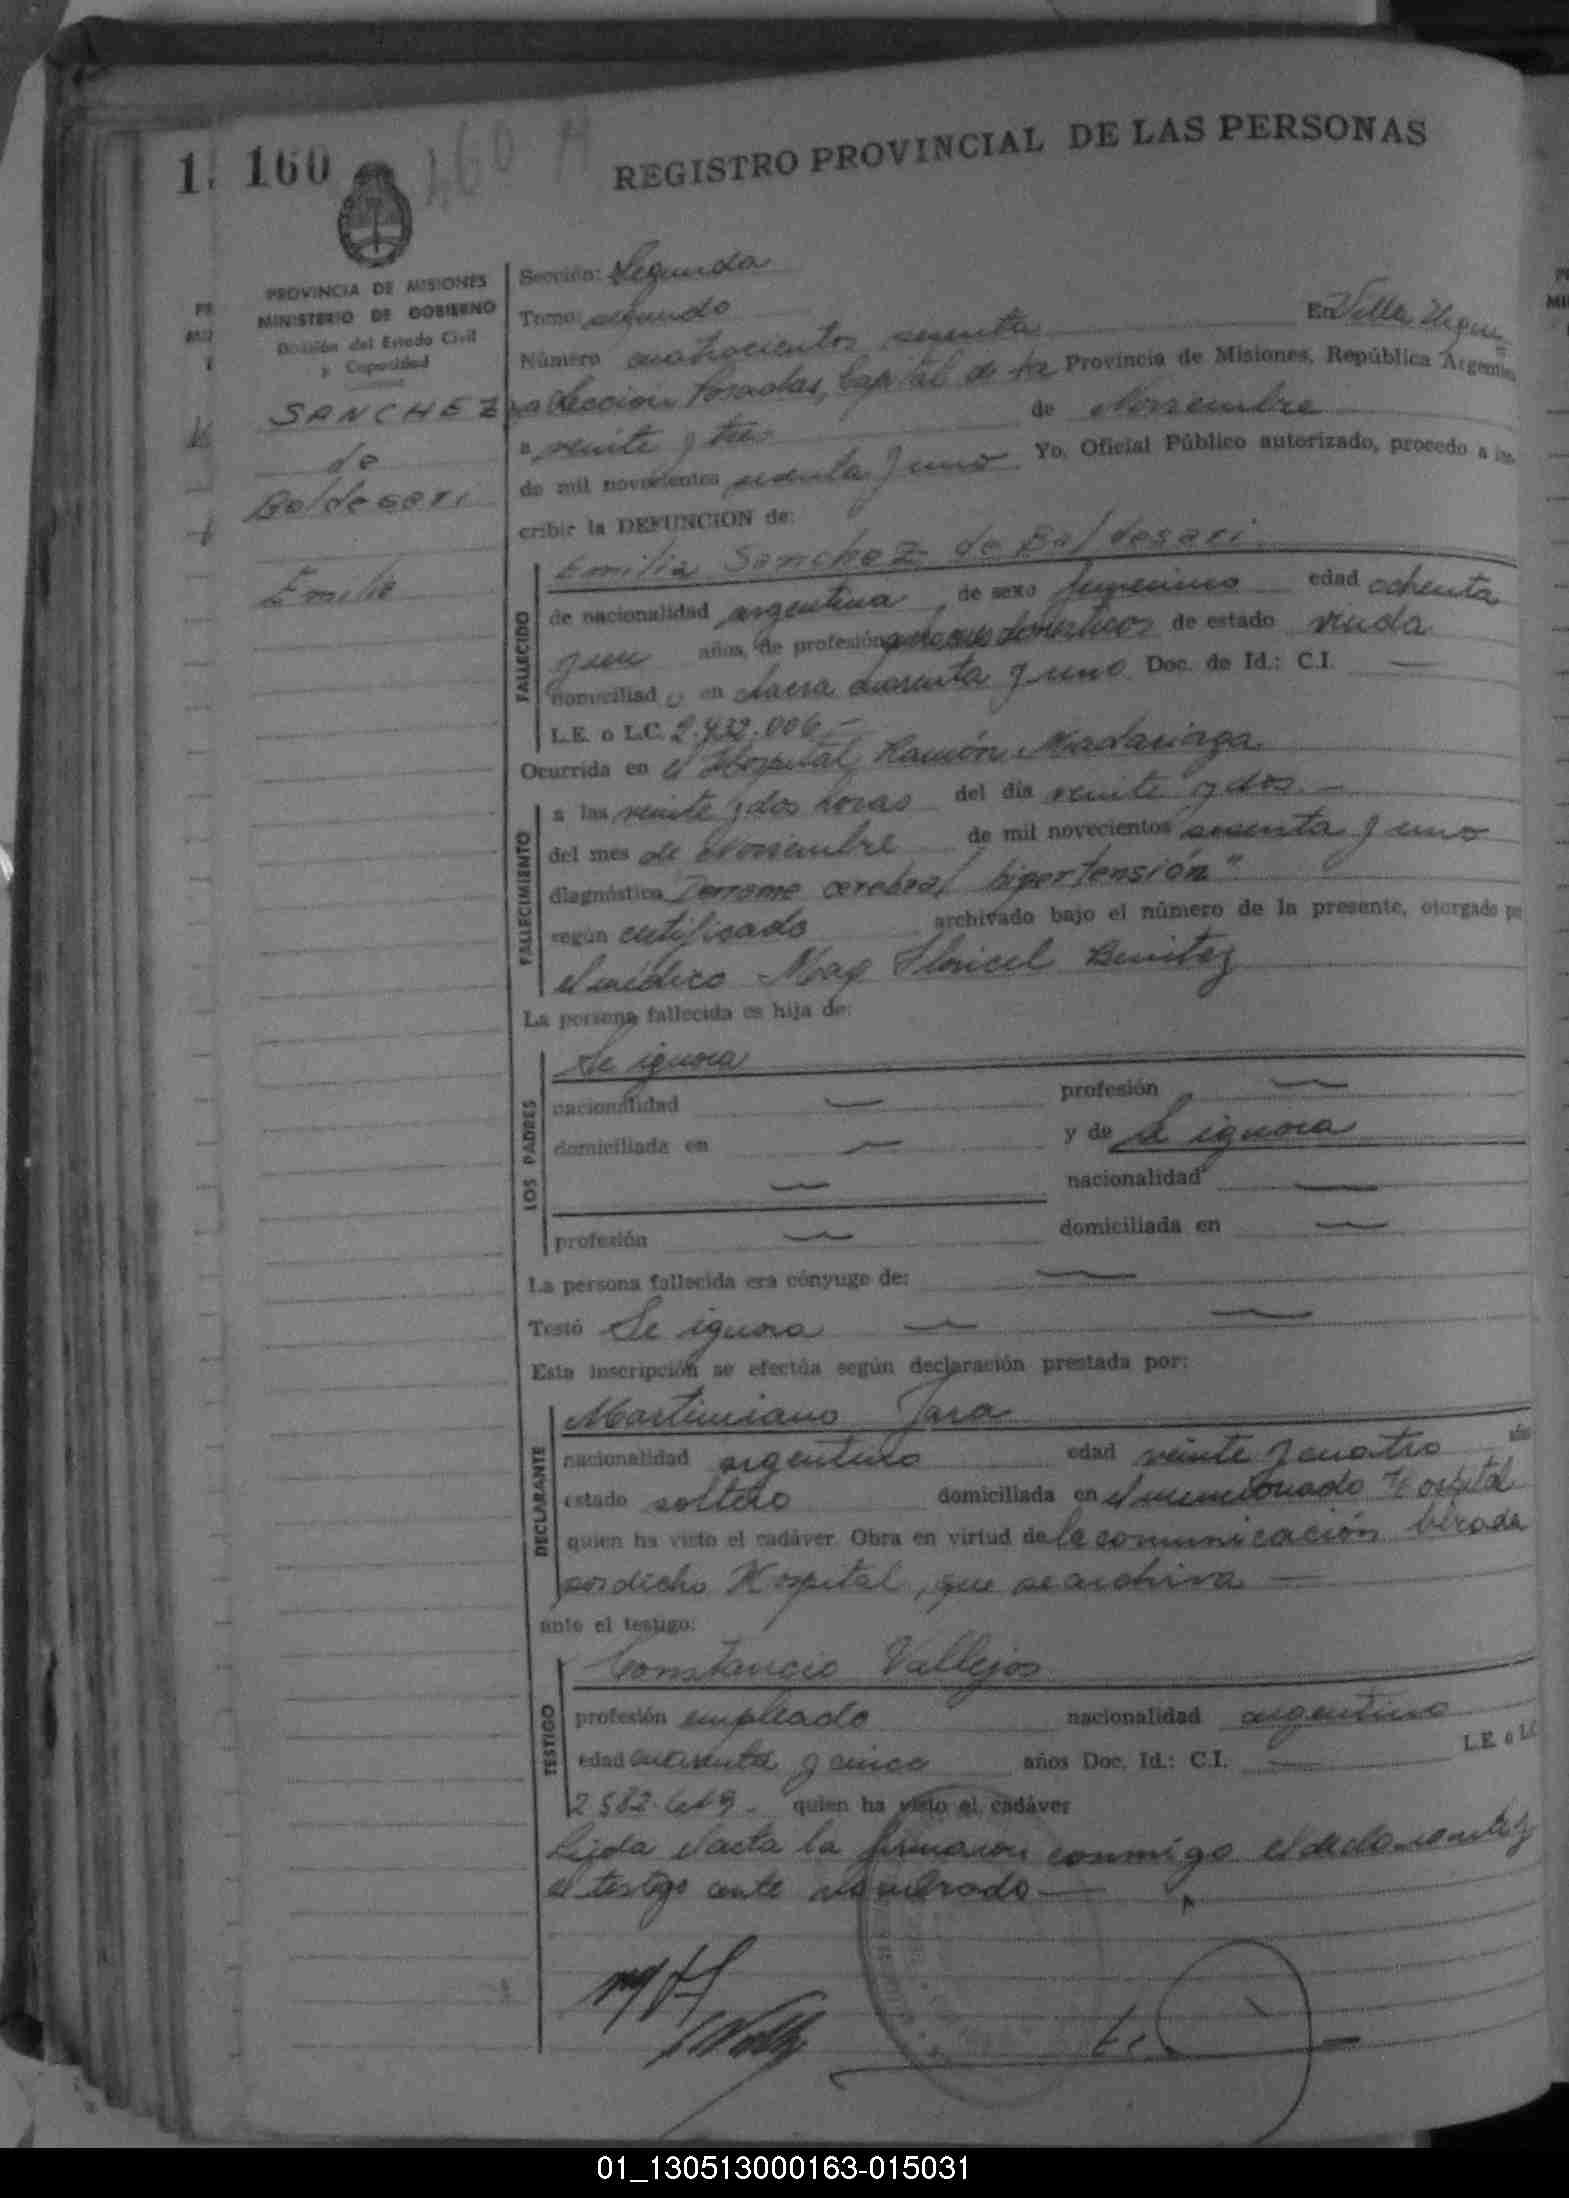 1. 160 460 H
REGISTRO PROVINCIAL DE LAS PERSONAS
PROVINCIA DE MISIONES
MINISTERIO DE GOBIERNO
División del Estado Civil
y Capacidad
SANCHEZ
de
Baldesari
Emilia
Sección: Segunda
Tomo: segundo
Número cuatrocientos sesenta En Villa Urqui
za Sección Posadas, Capital de la Provincia de Misiones, República Argentina
a veinte y tres de Noviembre
de mil novecientos sesenta y uno Yo, Oficial Público autorizado, procedo a ins-
cribir la DEFUNCION de:
FALLECIDO
Emilia Sanchez de Baldesari
de nacionalidad argentina, de sexo femenino edad ochenta
y un años, de profesión domésticos de estado viuda
domiciliad a en chacra cuarenta y uno Doc. de Id.: C.I. —
L.E. o L.C. 2.432.006.—
Ocurrida en el Hospital Ramón Madariaga
FALLECIMIENTO
a las veinte y dos horas del día veinte y dos.—
del mes de Noviembre de mil novecientos sesenta y uno
diagnóstico Derrame cerebral, hipertensión"
según certificado archivado bajo el número de la presente, otorgado por
el médico Benitez
La persona fallecida es hija de:
LOS PADRES
Se ignora
nacionalidad — profesión —
domiciliada en — y de Se ignora
— nacionalidad —
profesión — domiciliada en —
La persona fallecida era cónyuge de: —
Testó Se ignora — —
Esta inscripción se efectúa según declaración prestada por:
DECLARANTE
Martimiano Jara
nacionalidad argentino edad veinte y cuatro años
estado soltero domiciliada en el mencionado Hospital
quien ha visto el cadáver. Obra en virtud de la comunicación librada
por dicho Hospital, que se archiva —
ante el testigo:
TESTIGO
Constancio Vallejos
profesión empleado nacionalidad argentino
edad cuarenta y cinco años Doc. Id.: C.I. — L.E. o L.C.
quien ha visto el cadáver
Leída el acta la firmaron conmigo el declarante y
el testigo ante nombrado —
01_130513000163-015031